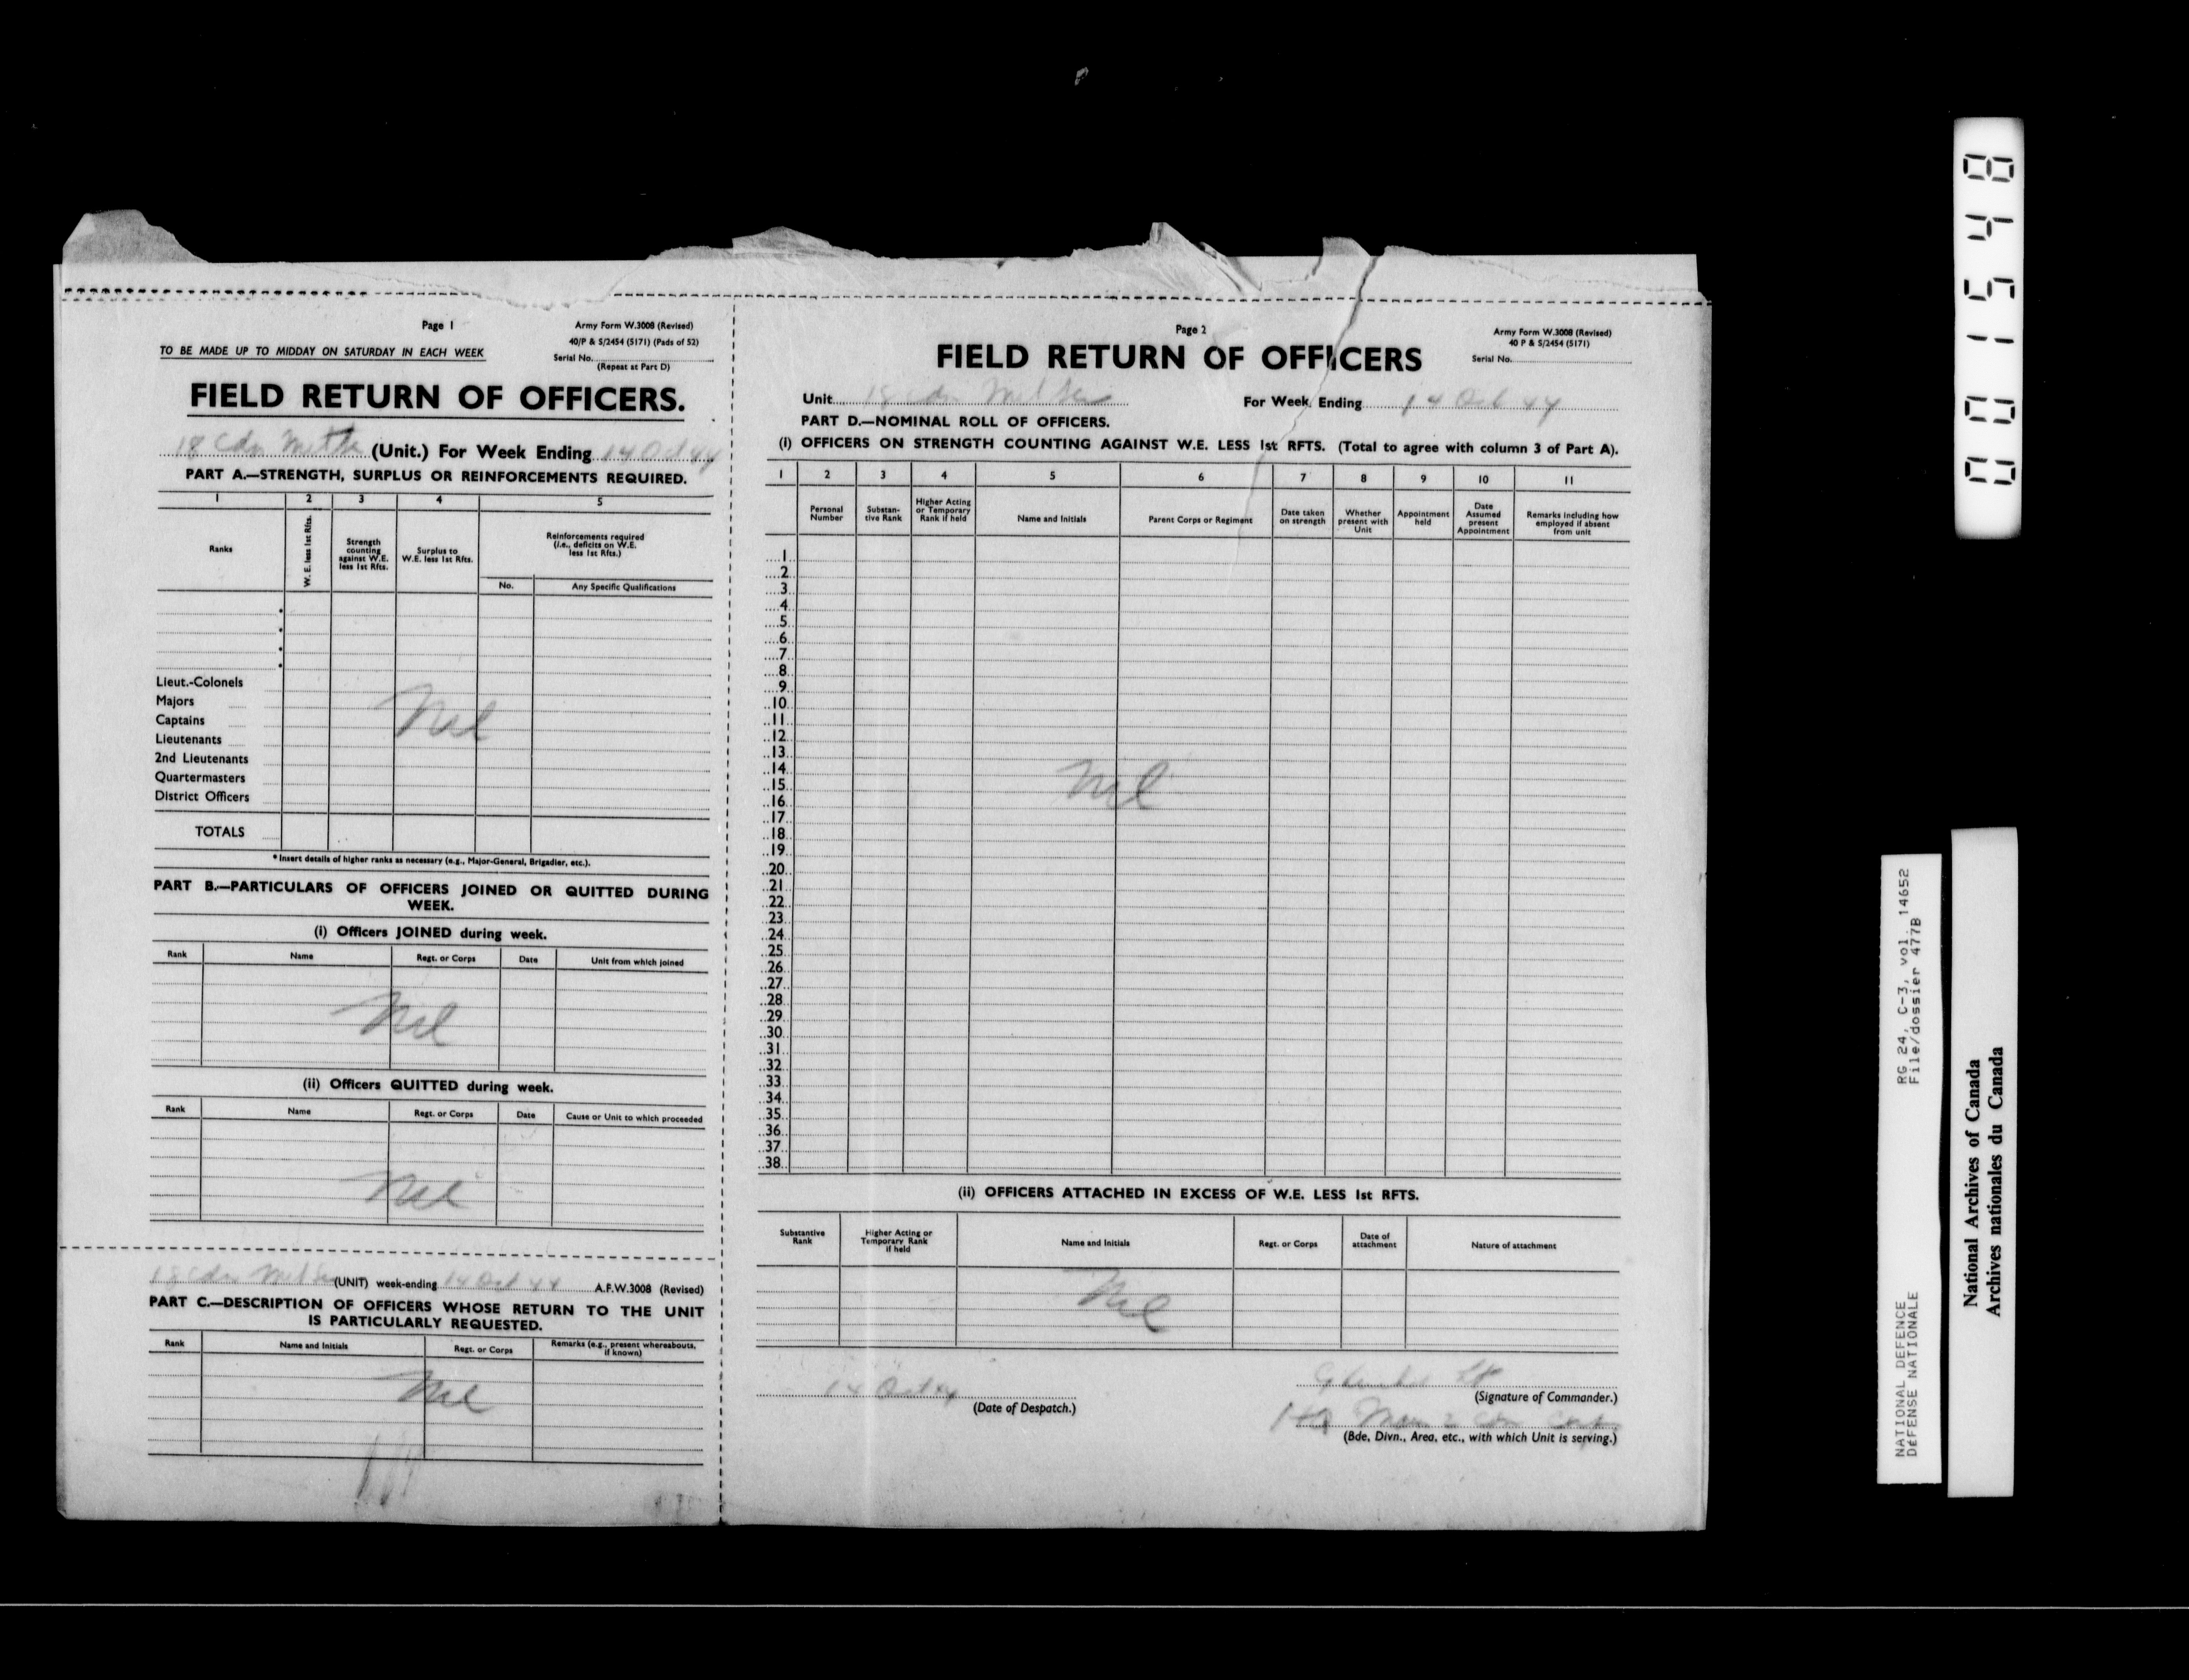 Page 1
Army Form W.3008 (Revised)
40/P & S/2454 (5171) (Pads of 52)
TO BE MADE UP TO MIDDAY ON SATURDAY IN EACH WEEK
Serial No.
(Repeat at Part D)
FIELD RETURN OF OFFICERS.
18 Cdn (Unit.) For Week Ending 14 Oct 44
PART A.—STRENGTH, SURPLUS OR REINFORCEMENTS REQUIRED.
1 2 3 4 5
Ranks
W. E. less 1st Rfts.
Strength counting against W.E. less 1st Rfts.
Surplus to W.E. less 1st Rfts.
Reinforcements required (i.e., deficits on W.E. less 1st Rfts.)
No. Any Specific Qualifications
*
*
*
*
Lieut.-Colonels
Majors
Captains
Nil
Lieutenants
2nd Lieutenants
Quartermasters
District Officers
TOTALS
* Insert details of higher ranks as necessary (e.g., Major-General, Brigadier, etc.).
PART B.—PARTICULARS OF OFFICERS JOINED OR QUITTED DURING
WEEK.
(i) Officers JOINED during week.
Rank Name Regt. or Corps Date Unit from which joined
Nil
(ii) Officers QUITTED during week.
Rank Name Regt. or Corps Date Cause or Unit to which proceeded
Nil
18 Cdn (UNIT) week-ending 14 Oct 44 A.F.W.3008 (Revised)
PART C.—DESCRIPTION OF OFFICERS WHOSE RETURN TO THE UNIT
IS PARTICULARLY REQUESTED.
Rank Name and Initials Regt. or Corps Remarks (e.g., present whereabouts, if known)
Nil
Page 2
Army Form W.3008 (Revised)
40 P & S/2454 (5171)
Serial No.
FIELD RETURN OF OFFICERS
Unit 18 Cdn For Week Ending 14 Oct 44
PART D.—NOMINAL ROLL OF OFFICERS.
(i) OFFICERS ON STRENGTH COUNTING AGAINST W.E. LESS 1st RFTS. (Total to agree with column 3 of Part A).
1 2 3 4 5 6 7 8 9 10 11
Personal Number
Substantive Rank
Higher Acting or Temporary Rank if held
Name and Initials
Parent Corps or Regiment
Date taken on strength
Whether present with Unit
Appointment held
Date Assumed present Appointment
Remarks including how employed if absent from unit
1
2
3
4
5
6
7
8
9
10
11
12
13
14
15 Nil
16
17
18
19
20
21
22
23
24
25
26
27
28
29
30
31
32
33
34
35
36
37
38
(ii) OFFICERS ATTACHED IN EXCESS OF W.E. LESS 1st RFTS.
Substantive Rank
Higher Acting or Temporary Rank if held
Name and Initials
Regt. or Corps
Date of attachment
Nature of attachment
Nil
14 Oct 44
(Date of Despatch.)
(Signature of Commander.)
(Bde, Divn., Area, etc., with which Unit is serving.)
0001548
RG 24, C-3, vol. 14652
File/dossier 477B
NATIONAL DEFENCE
DÉFENSE NATIONALE
National Archives of Canada
Archives nationales du Canada